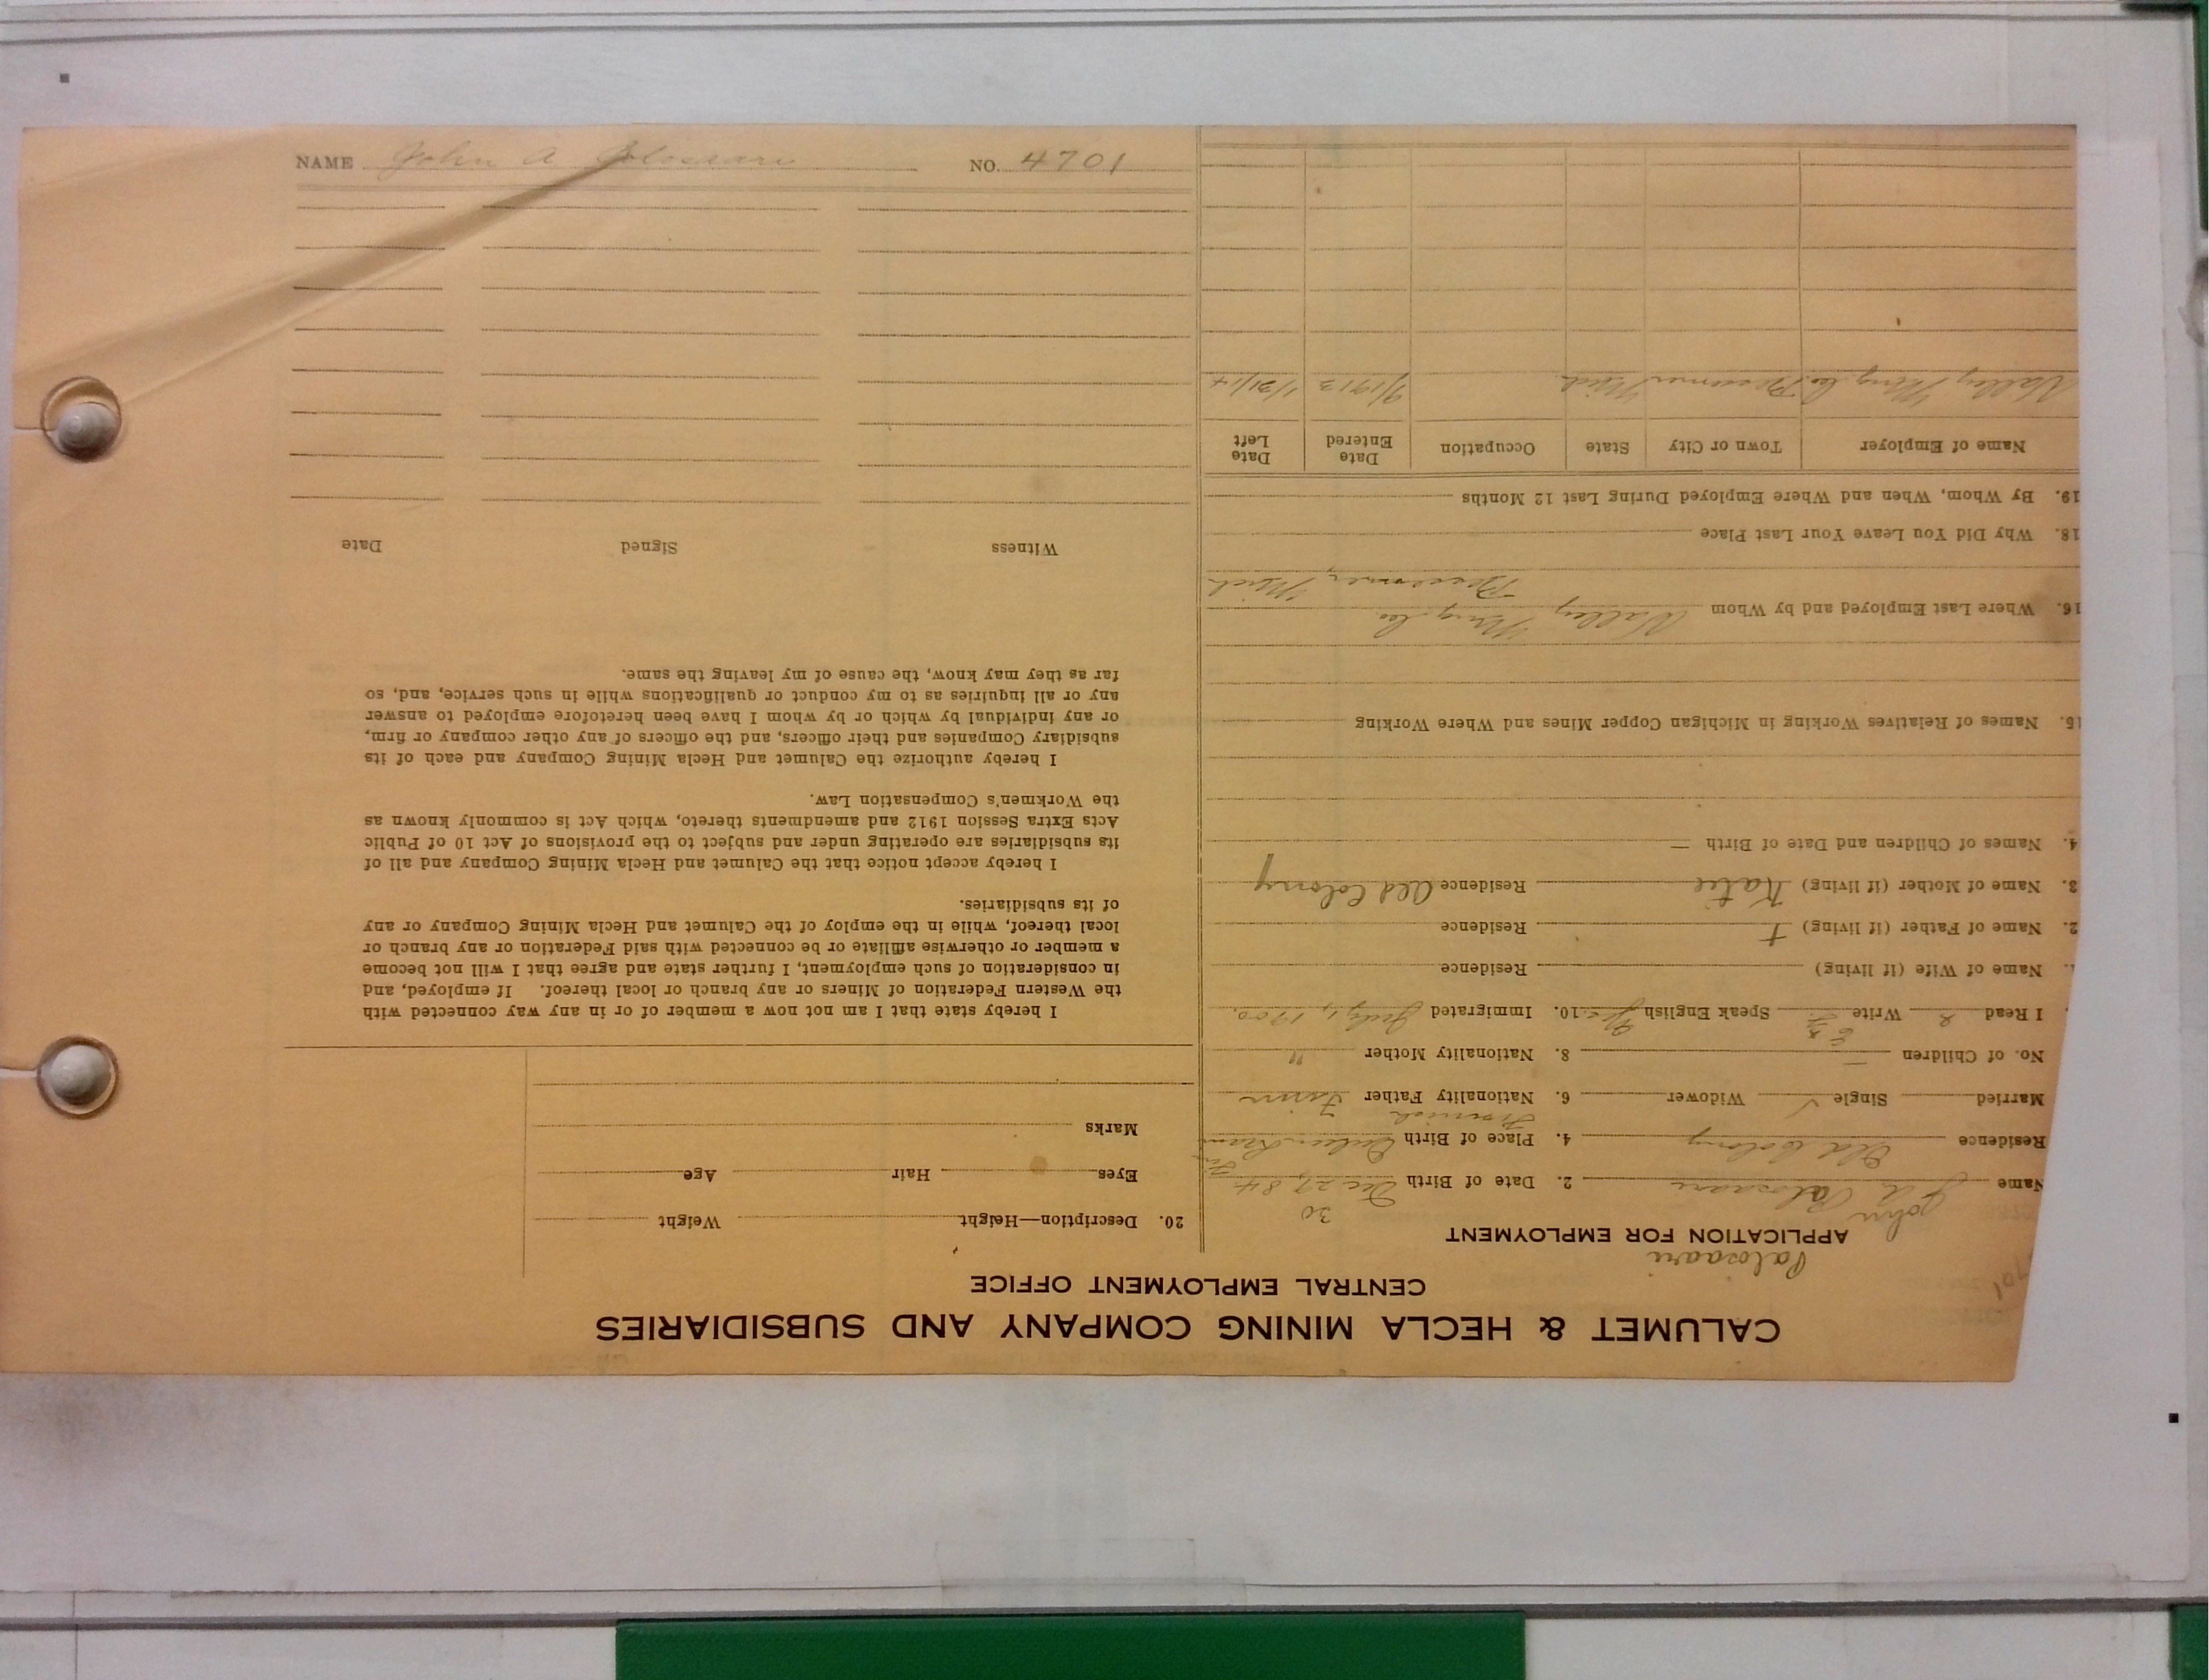 CALUMET & HECLA MINING COMPANY AND SUBSIDIARIES
CENTRAL EMPLOYMENT OFFICE
Palosaari
APPLICATION FOR EMPLOYMENT
John 30
Name J A Palosaari 2. Date of Birth Dec 27, 84
Residence Old Colony 4. Place of Birth
Married Single ✓ Widower 6. Nationality Father Finn
No. of Children — 8. Nationality Mother "
I Read Write Speak English Yes 10. Immigrated July 1, 1900
Name of Wife (if living) Residence
2. Name of Father (if living) † Residence
3. Name of Mother (if living) Katie Residence Old Colony
4. Names of Children and Date of Birth —
15. Names of Relatives Working in Michigan Copper Mines and Where Working
16. Where Last Employed and by Whom Valley Mng Co.
Bessemer, Mich
18. Why Did You Leave Your Last Place
19. By Whom, When and Where Employed During Last 12 Months
Name of Employer Town or City State Occupation Date Entered Date Left
Valley Mng Co. Bessemer Mich. 9/1913 1/31/14
20. Description—Height Weight
Eyes Hair Age
Marks
I hereby state that I am not now a member of or in any way connected with
the Western Federation of Miners or any branch or local thereof. If employed, and
in consideration of such employment, I further state and agree that I will not become
a member or otherwise affiliate or be connected with said Federation or any branch or
local thereof, while in the employ of the Calumet and Hecla Mining Company or any
of its subsidiaries.
I hereby accept notice that the Calumet and Hecla Mining Company and all of
its subsidiaries are operating under and subject to the provisions of Act 10 of Public
Acts Extra Session 1912 and amendments thereto, which Act is commonly known as
the Workmen's Compensation Law.
I hereby authorize the Calumet and Hecla Mining Company and each of its
subsidiary Companies and their officers, and the officers of any other company or firm,
or any individual by which or by whom I have been heretofore employed to answer
any or all inquiries as to my conduct or qualifications while in such service, and, so
far as they may know, the cause of my leaving the same.
Witness Signed Date
NAME John A Palosaari NO. 4701